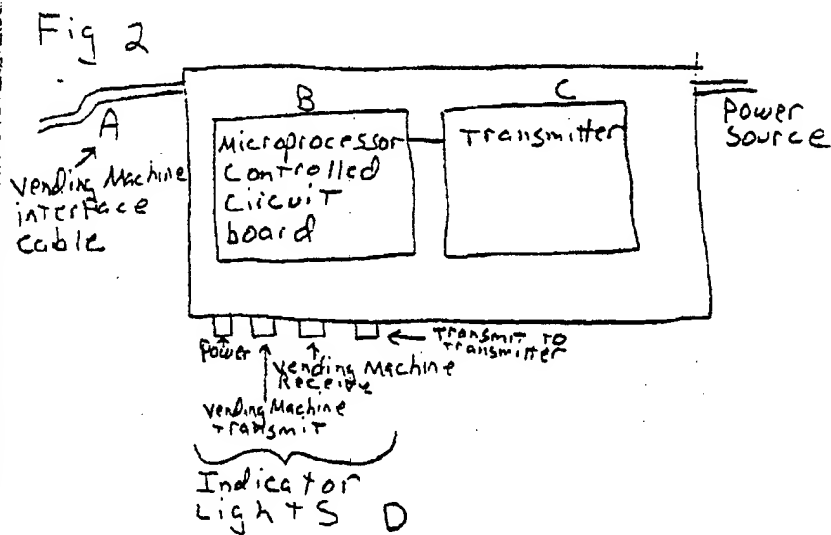 Fig 2
A
Vending Machine
interface
cable
B
Microprocessor
Controlled
Circuit
board
C
Transmitter
Power
Source
Power
Vending Machine
Transmit
Vending Machine
Receive
Transmit to
Transmitter
Indicator
Lights D